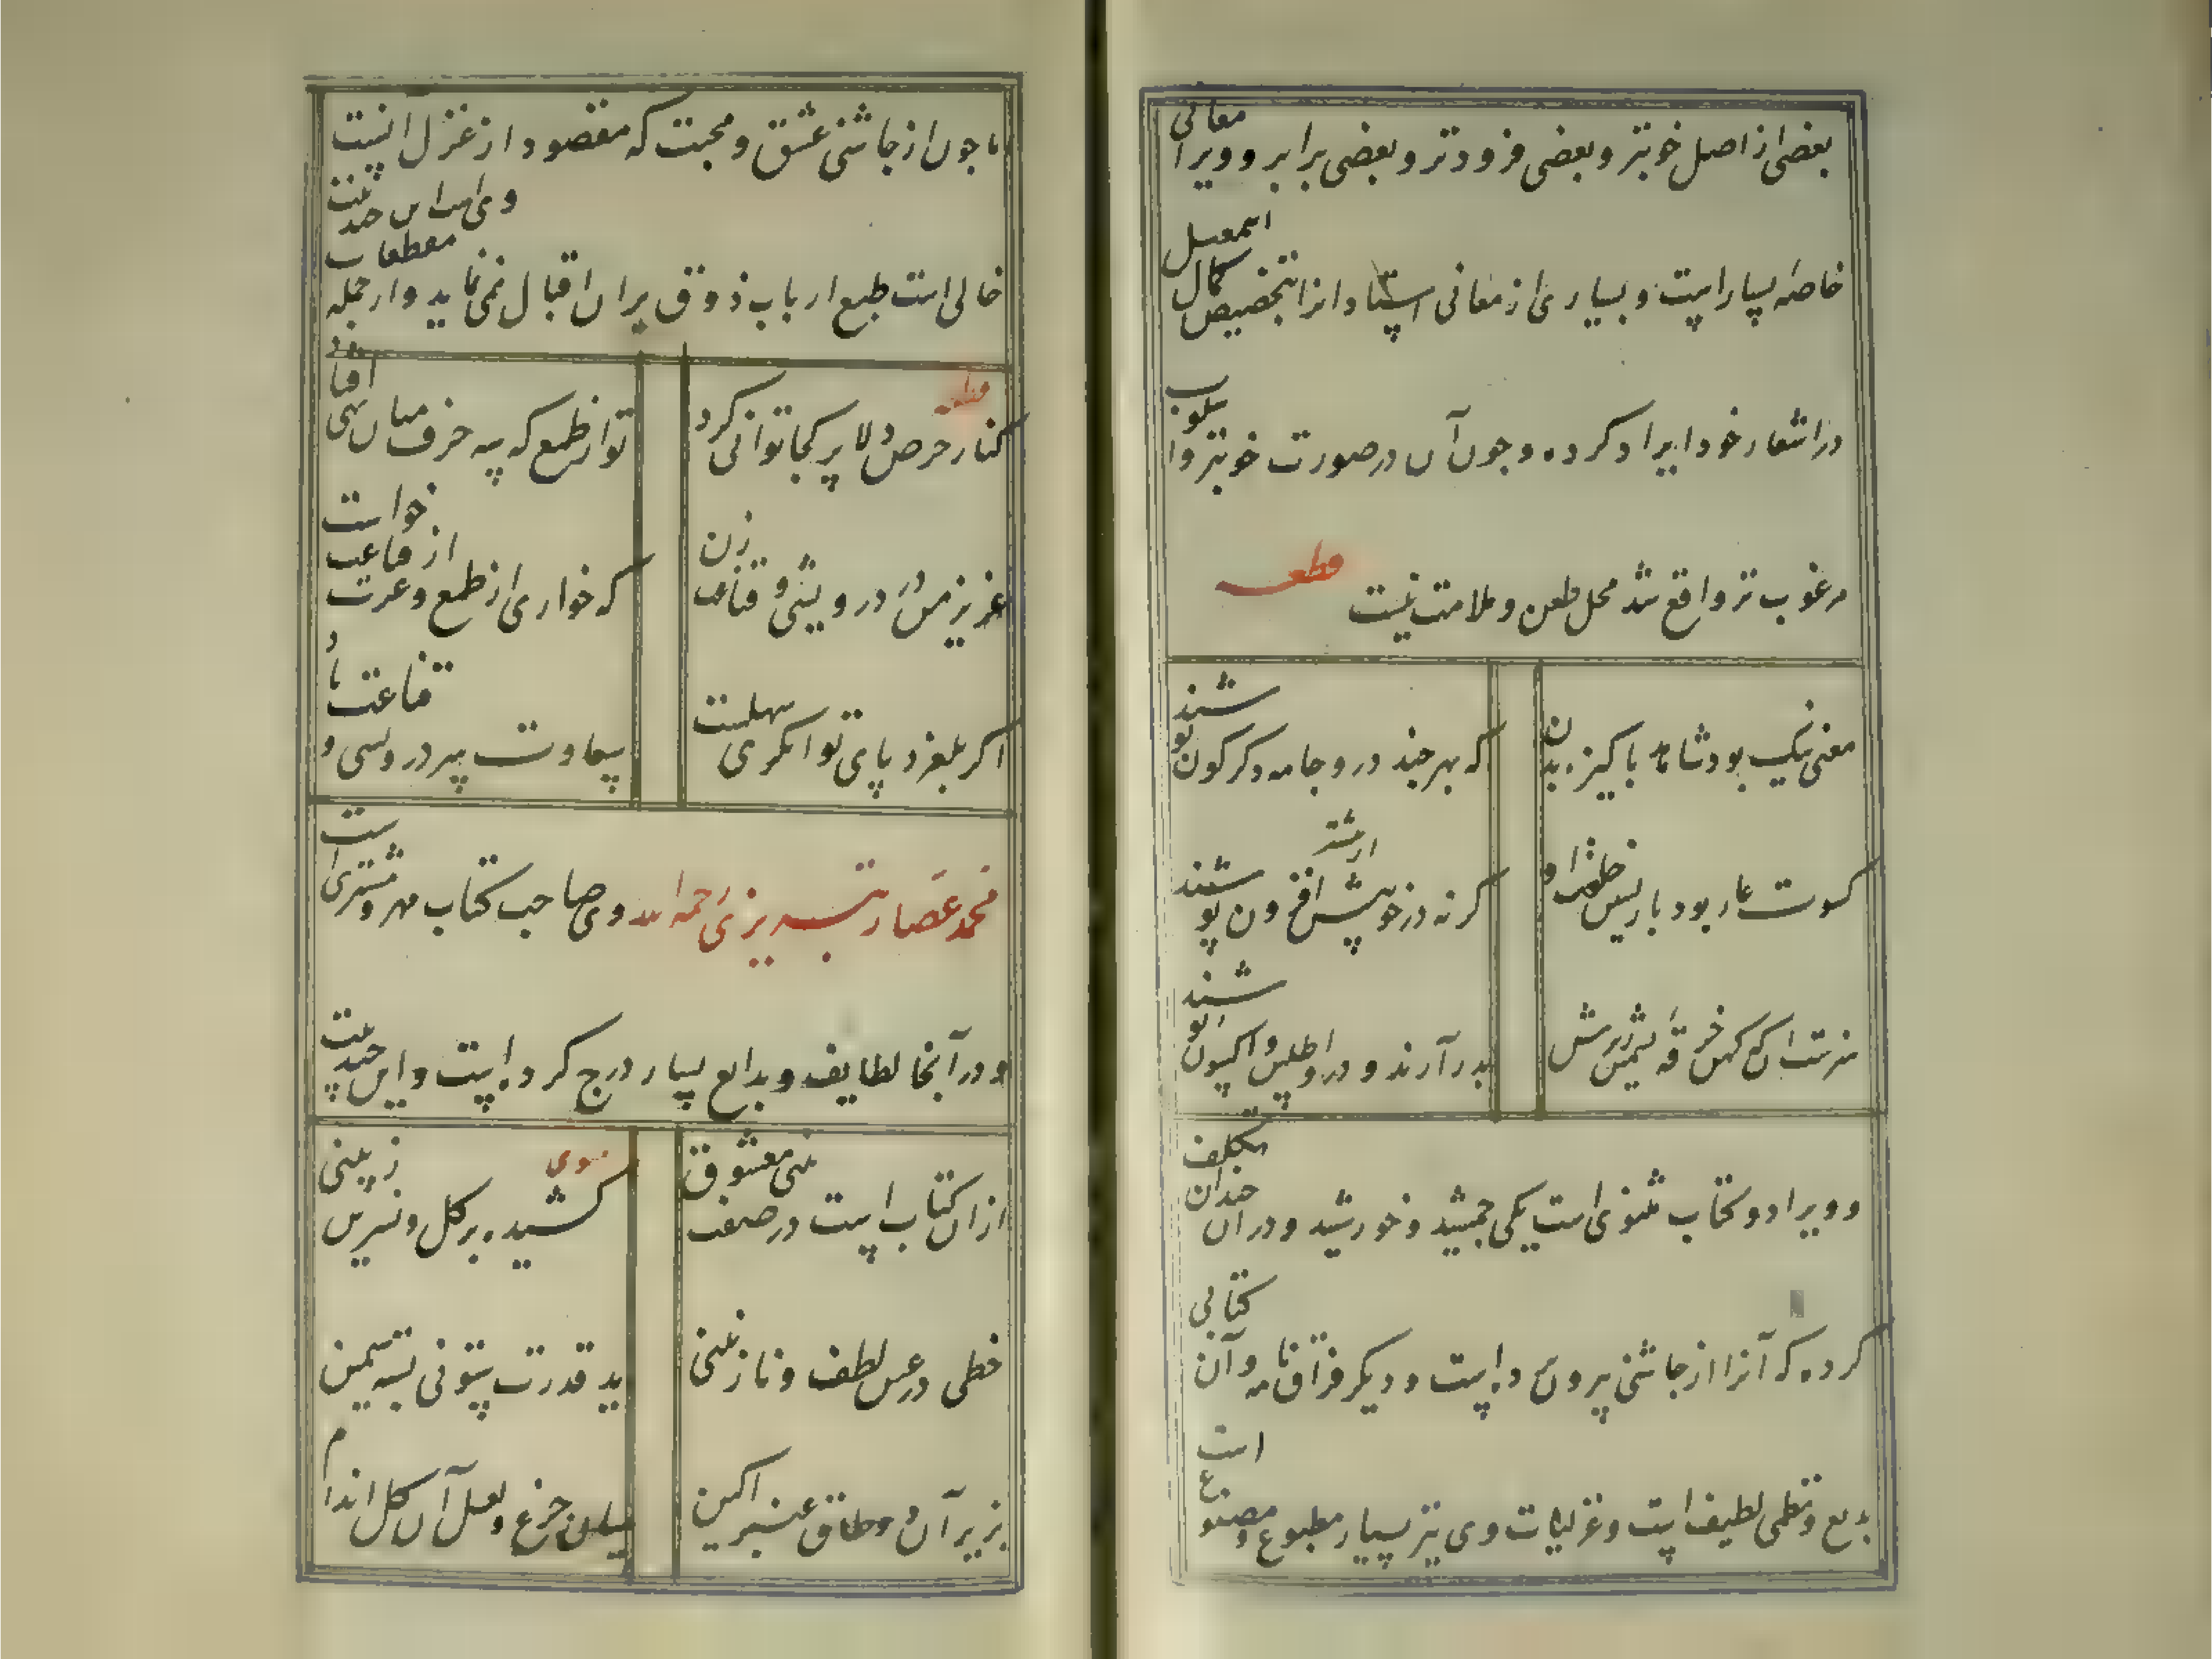 بعضی از اصل خوبتر و بعضی فرودتر و بعضی برابر و ویرا معانی
خاصه بسیار است و بسیاری از معانی استادانرا بتخصیص کمال اسمعیل
در اشعار خود ایراد کرده و چون آن در صورت خوبتر و اسلوب
مرغوب تر واقع شد محل طعن و ملامت نیست قطعه
معنی نیک بود شاهد پاکیزه بدن
که بهر چند درو جامه دکرکون پوشند
کسوت عار بود باز پسین خلعت او
کر نه در خوبیش از پیشتر افزون پوشند
هنرست آن که کهن خرقه پشمین ز برش
بدر آرند و درو اطلس و اکسون پوشند
و ویرا دو کتاب مثنوی است یکی جمشید و خورشید و در آن چندان تکلف
کرده که آنرا از چاشنی بیرون برده است و دیکر فراق نامه و آن کتابی
بدیع و نظمی لطیف است و غزلیات وی نیز بسیار مطبوع و مصنوع است
اما چون از چاشنی عشق و محبت که مقصود از غزل آنست
خالی است طبع ارباب ذوق بران اقبال نمی نماید و از جمله مقطعات وی است این چند بیت
قطعه
کنار حرص دلا پر کجا توانی کرد
تو از طمع که سه حرف میان تهی افتاد
عزیز من در درویشی و قناعت زن
که خواری از طمع و عزت از قناعت خواست
اکر بلغزد پای توانکری سهلست
بقاوت سر درویشی و قناعت باد
محمد عصار تبریزی رحمه الله وی صاحب کتاب مهر و مشتری است
و در آنجا لطایف و بدایع بسیار درج کرده است و این چند بیت
از ان کتاب است در صفت بینی معشوق
مثنوی
کشیده بر کل و نسرین ز بینی
خطی در عین لطف و نازنینی
ید قدرت ستونی بسته سیمین
بزیر آن دو طاق عنبر آکین
میان جزع و لعل آن کل اندام